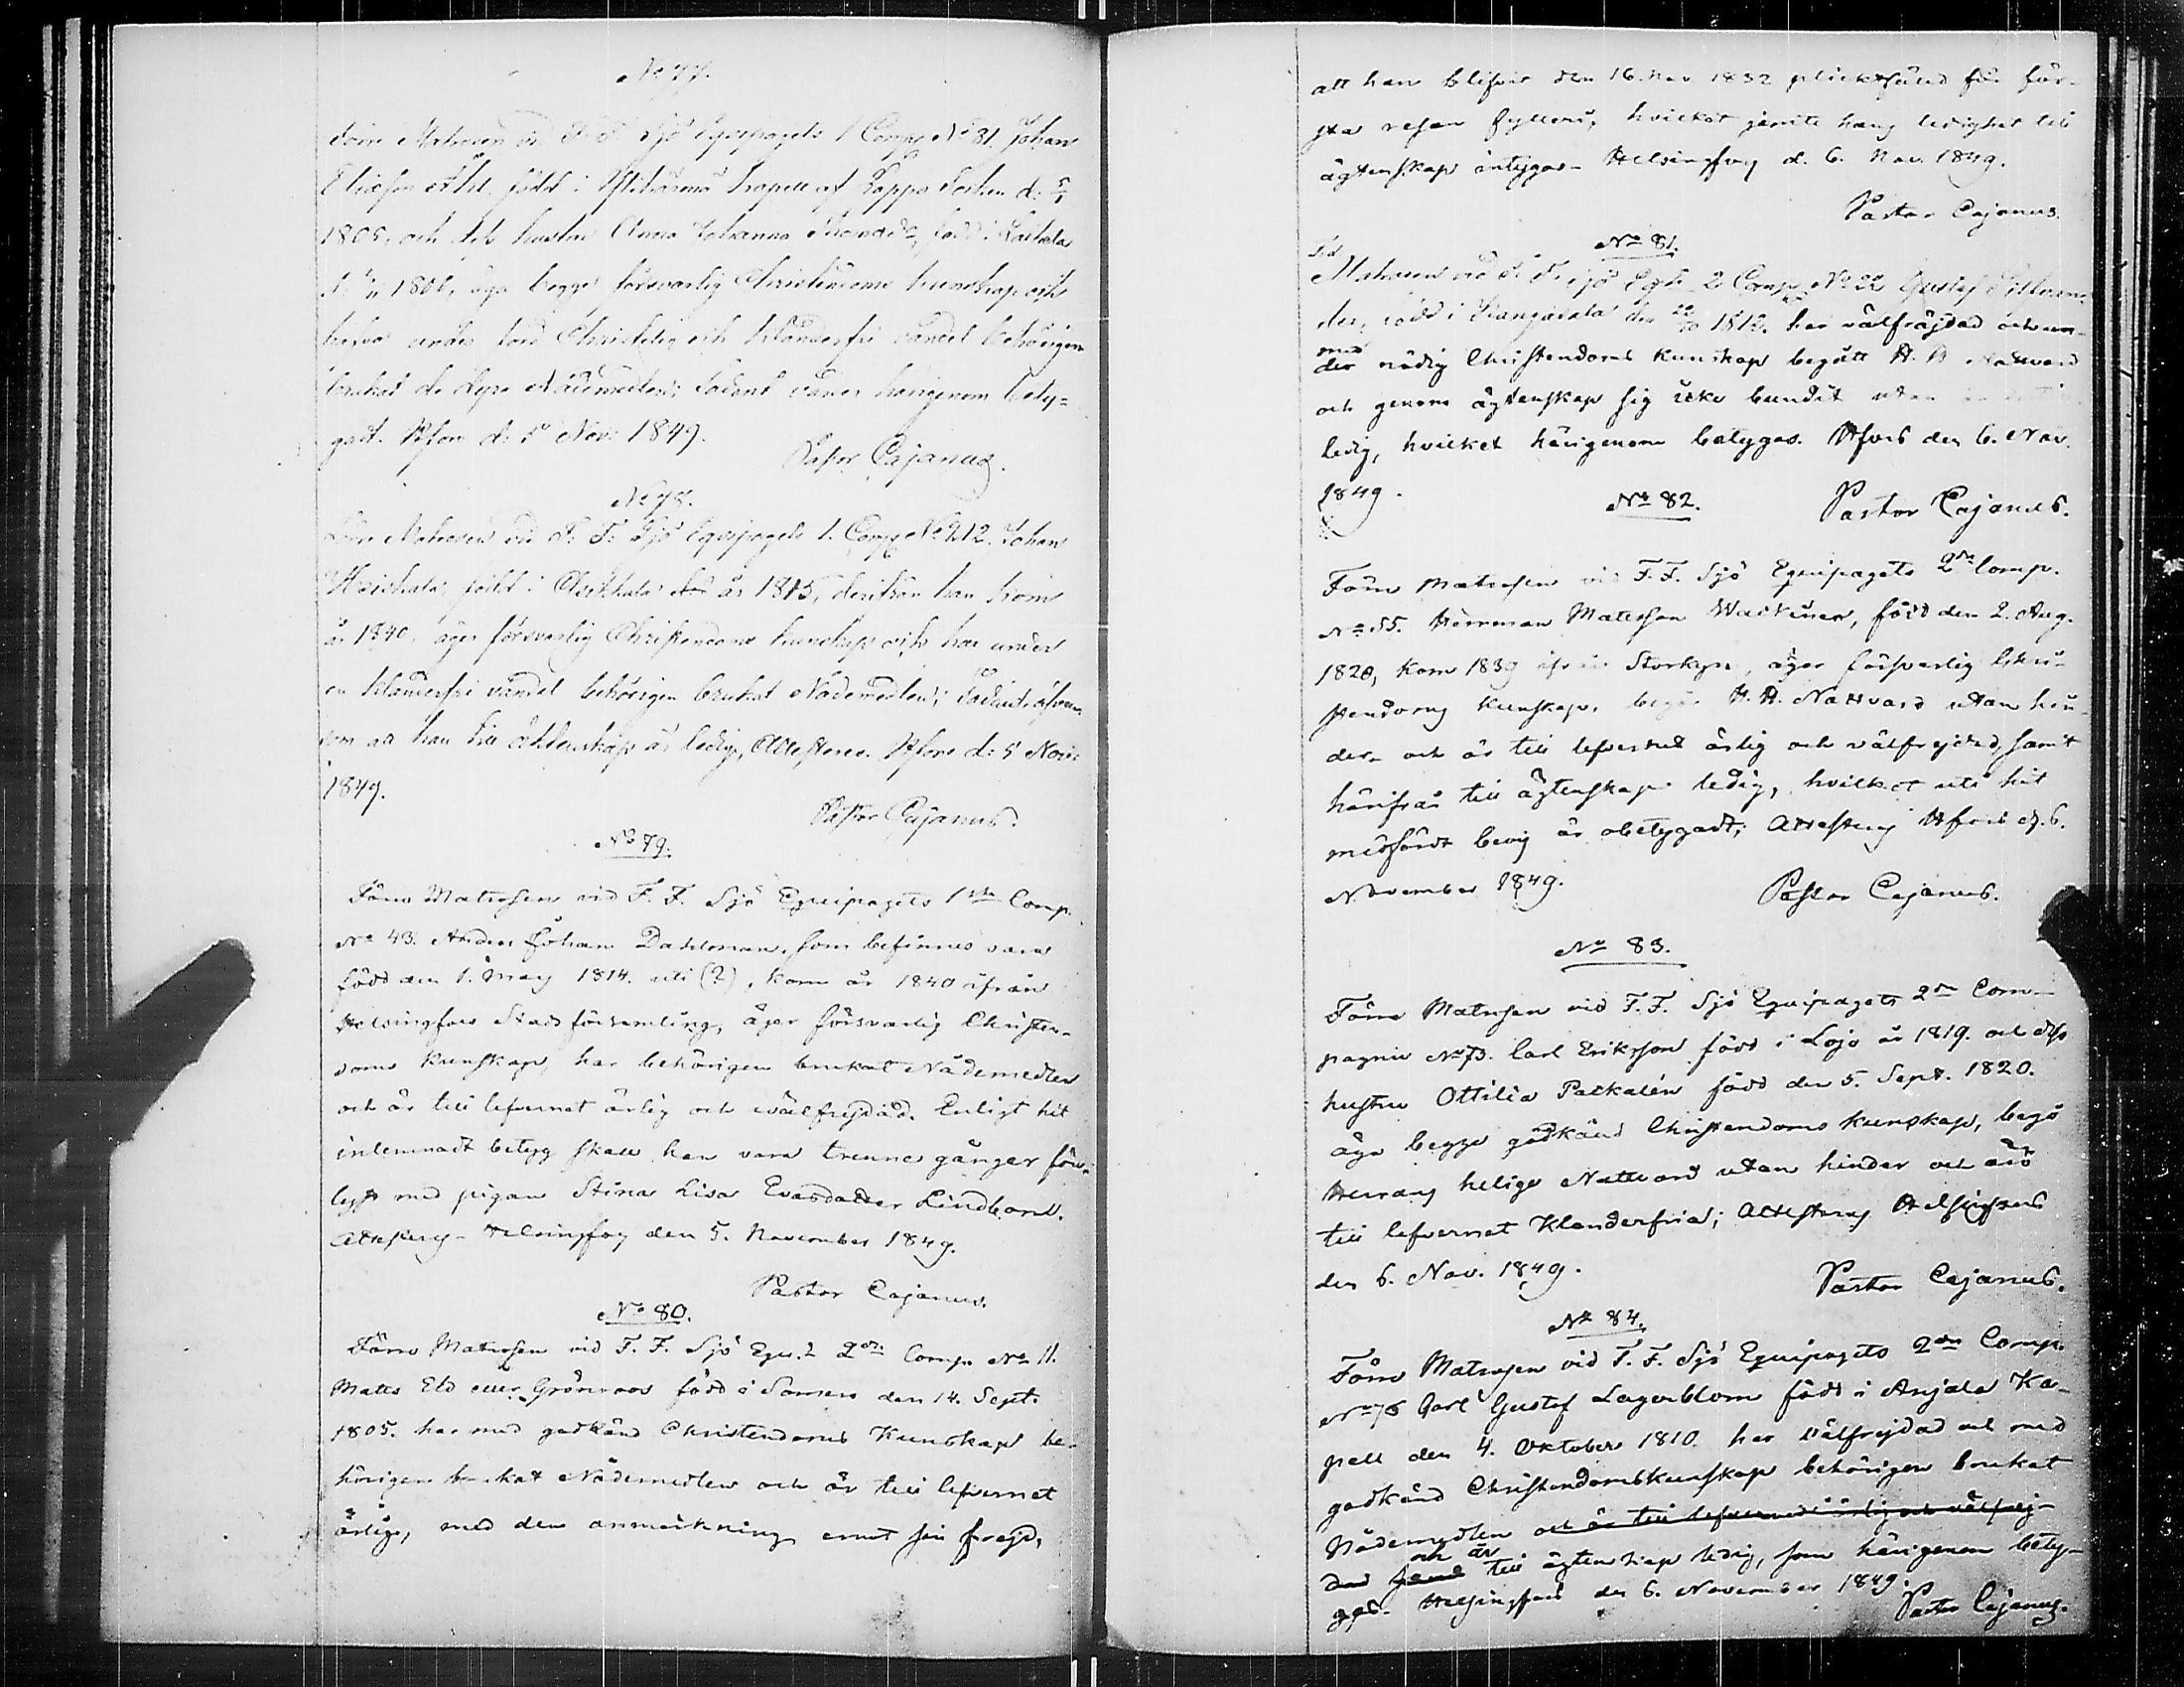 No 77.
Före Matrosen vid F. F. Sjö Equipagets 1 Comp No 31 Johan
född i Ylihärmä kapell af Lappo Socken d:
1805, och dess hustru Anna Johanna född i
1806, äga begge försvarlig Christendoms kunskap och
hafva under förd Christelig och klanderfri vandel behörigen
brukat de dyra Nådemedlen; Sådant varder härigenom bety=
gadt. Hfors d: 5 Nov: 1849.
Pastor Cajanus.
No 78.
Före Matrosen vid F. F. Sjö Equipagets 1. Comp No 212. Johan
född i år 1815, derifrån han kom
år 1840, äger försvarlig Christendoms kunskap och har under
en klanderfri vandel behörigen brukat Nådemedlen; Sådant äfven
som att han till äktenskap är ledig, Attesteras. Hfors d: 5 Nov:
1849.
Pastor Cajanus.
No 79.
Förre Matrosen vid F. F. Sjö Equipagets 1sta Comp.
No 43. Anders Johan Dahlman, som befinnes vara
född den 1. May 1814. uti (?), kom år 1840 ifrån
Helsingfors Stadsförsamling, äger försvarlig Christen-
doms kunskap, har behörigen brukat Nådemedlen
och är till lefvernet ärlig och välfrejdad. Enligt hit
inlemnadt betyg skall han vara trenne gånger för-
lyst med pigan Stina Lisa Evasdotter Lindbom.
Attesteras Helsingfors den 5. November 1849.
Pastor Cajanus.
No 80.
Förre Matrosen vid F. F. Sjö Equ. 2dra Comp. No 11.
Matts Eld eller Grönroos född i Somero den 14. Sept.
1805. har med godkänd Christendoms Kunskap be-
hörigen brukat Nådemedlen och är till lefvernet
ärlig, med den anmärkning emot sin frejd,
att han blifvit den 16. Nov 1832 pliktfälld för för-
sta resan fylleri, hvilket jemte hans ledighet till
ägtenskap intygas. Helsingfors d. 6. Nov. 1849.
Pastor Cajanus.
No 81.
Matrosen vid F. F. Sjö Eq:ts 2 Comp. No 22 Gustaf
född i Kangasala den 22/10 1812. har välfrejdad och un-
med
der nödig Christendoms kunskap begått H. H. Nattvard
och genom ägtenskap sig icke bundit utan är
ledig, hvilket härigenom betygas. Hfors den 6. Nov.
1849.
Pastor Cajanus.
No 82.
Förre Matrosen vid F. F. Sjö Equipagets 2dra Comp.
No 55. Herrman Matsson född den 2. Aug.
1820, kom 1839 ifrån Storkyro, äger försvarlig Chri-
stendoms kunskap, begår H. H. Nattvard utan hin-
der och är till lefvernet ärlig och välfrejdad, samt
härifrån till ägtenskap ledig, hvilket uti hit
medfördt bevis är obetygadt; Attesteras Hfors d. 6.
November 1849.
Pastor Cajanus.
No 83.
Förre Matrosen vid F. F. Sjö Equipagets 2dra Com-
pagnie No 73. Carl Eriksson född i Lojo år 1819. och dess
hustru Ottilia Packalén född den 5. Sept. 1820.
äga begge godkänd Christendoms kunskap, begå
Herrans heliga Nattvard utan hinder och äro
till lefvernet klanderfria; Attesteras Helsingfors
den 6. Nov. 1849.
Pastor Cajanus.
No 84.
Förre Matrosen vid F. F. Sjö Equipagets 2dra Comp.
No 76 Carl Gustaf Lagerblom född i Anjala Ka-
pell den 4. Oktober 1810. har välfrejdad och med
godkänd Christendomskunskap behörigen brukat
Nådemedlen och är till lefvernet ärlig och välfrej-
och är
dad samt till ägtenskap ledig, som härigenom bety-
gas. Helsingfors den 6. November 1849.
Pastor Cajanus.